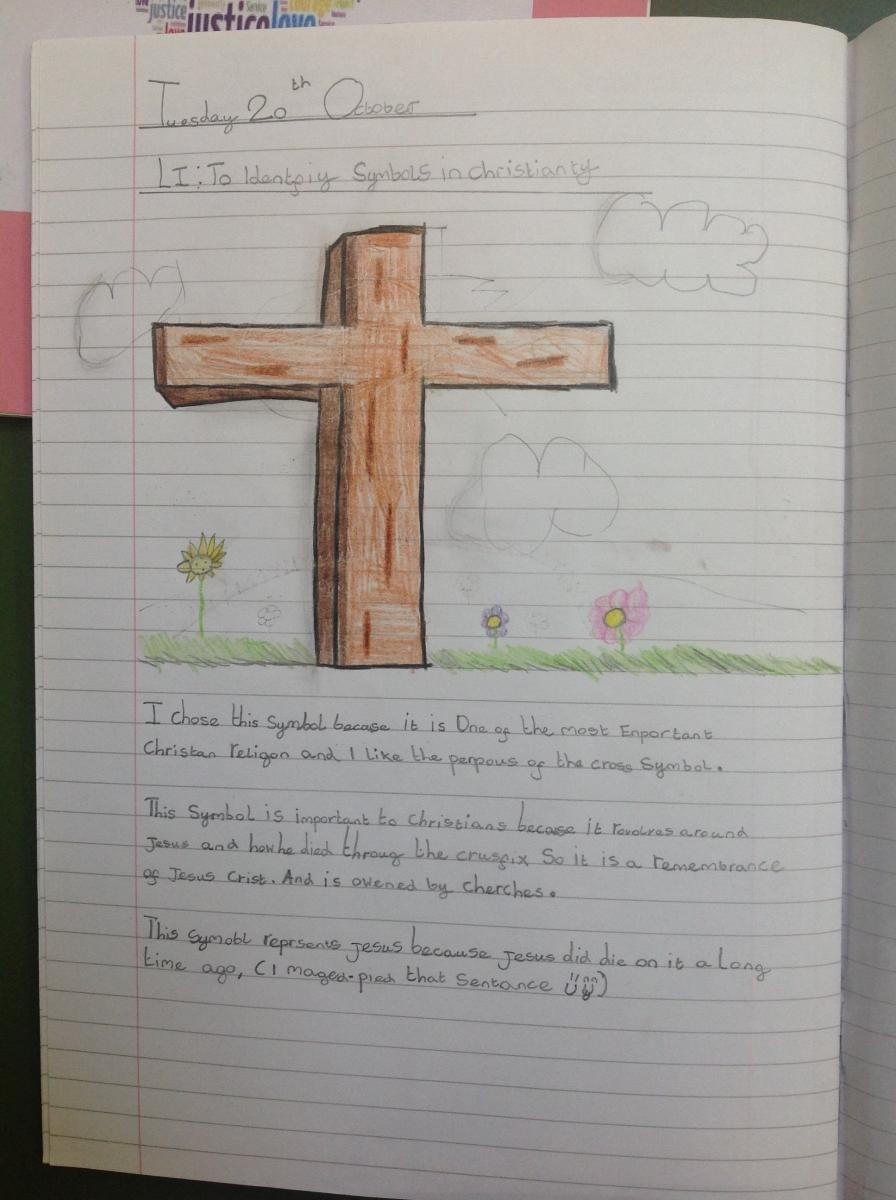 justice
Service
justice love
love
Tuesday 20th October
LI: To Identfiy Symbols in christianty
I chose this Symbol becase it is One of the most Enportant
Christan religon and I like the perpous of the cross Symbol.
This Symbol is important to Christians becase it revolves around
Jesus and how he died throug the crusfix So it is a remembrance
of Jesus Crist. And is owened by Cherches.
This symobl reprsents Jesus because Jesus did die on it a Long
time ago, (I maged-pied that Sentance